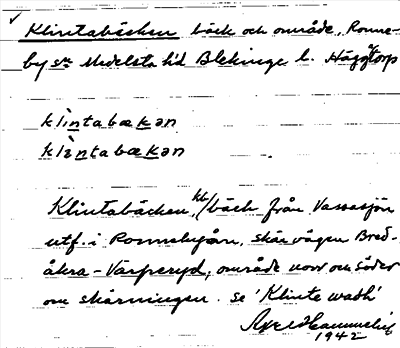 Klintabäcken bäck och område, Ronne-
by sn Medelsta hd Blekinge l. Häggatorp
klìntabækan
klìntabækan
Klintabäcken, kb/ bäck från Vassasjön
utf. i Ronnebyån, skär vägen Bred-
åkra-Värperyd, område norr om söder
om skärningen. Se 'Klinte wadh'
1942